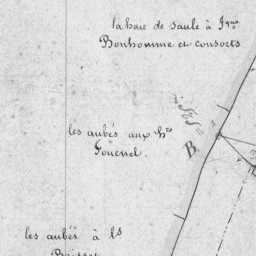 la haie de saule à Jque
Bonhomme et consorts
les aubés aux hrs
Gouenel.
B
les aubés à ls